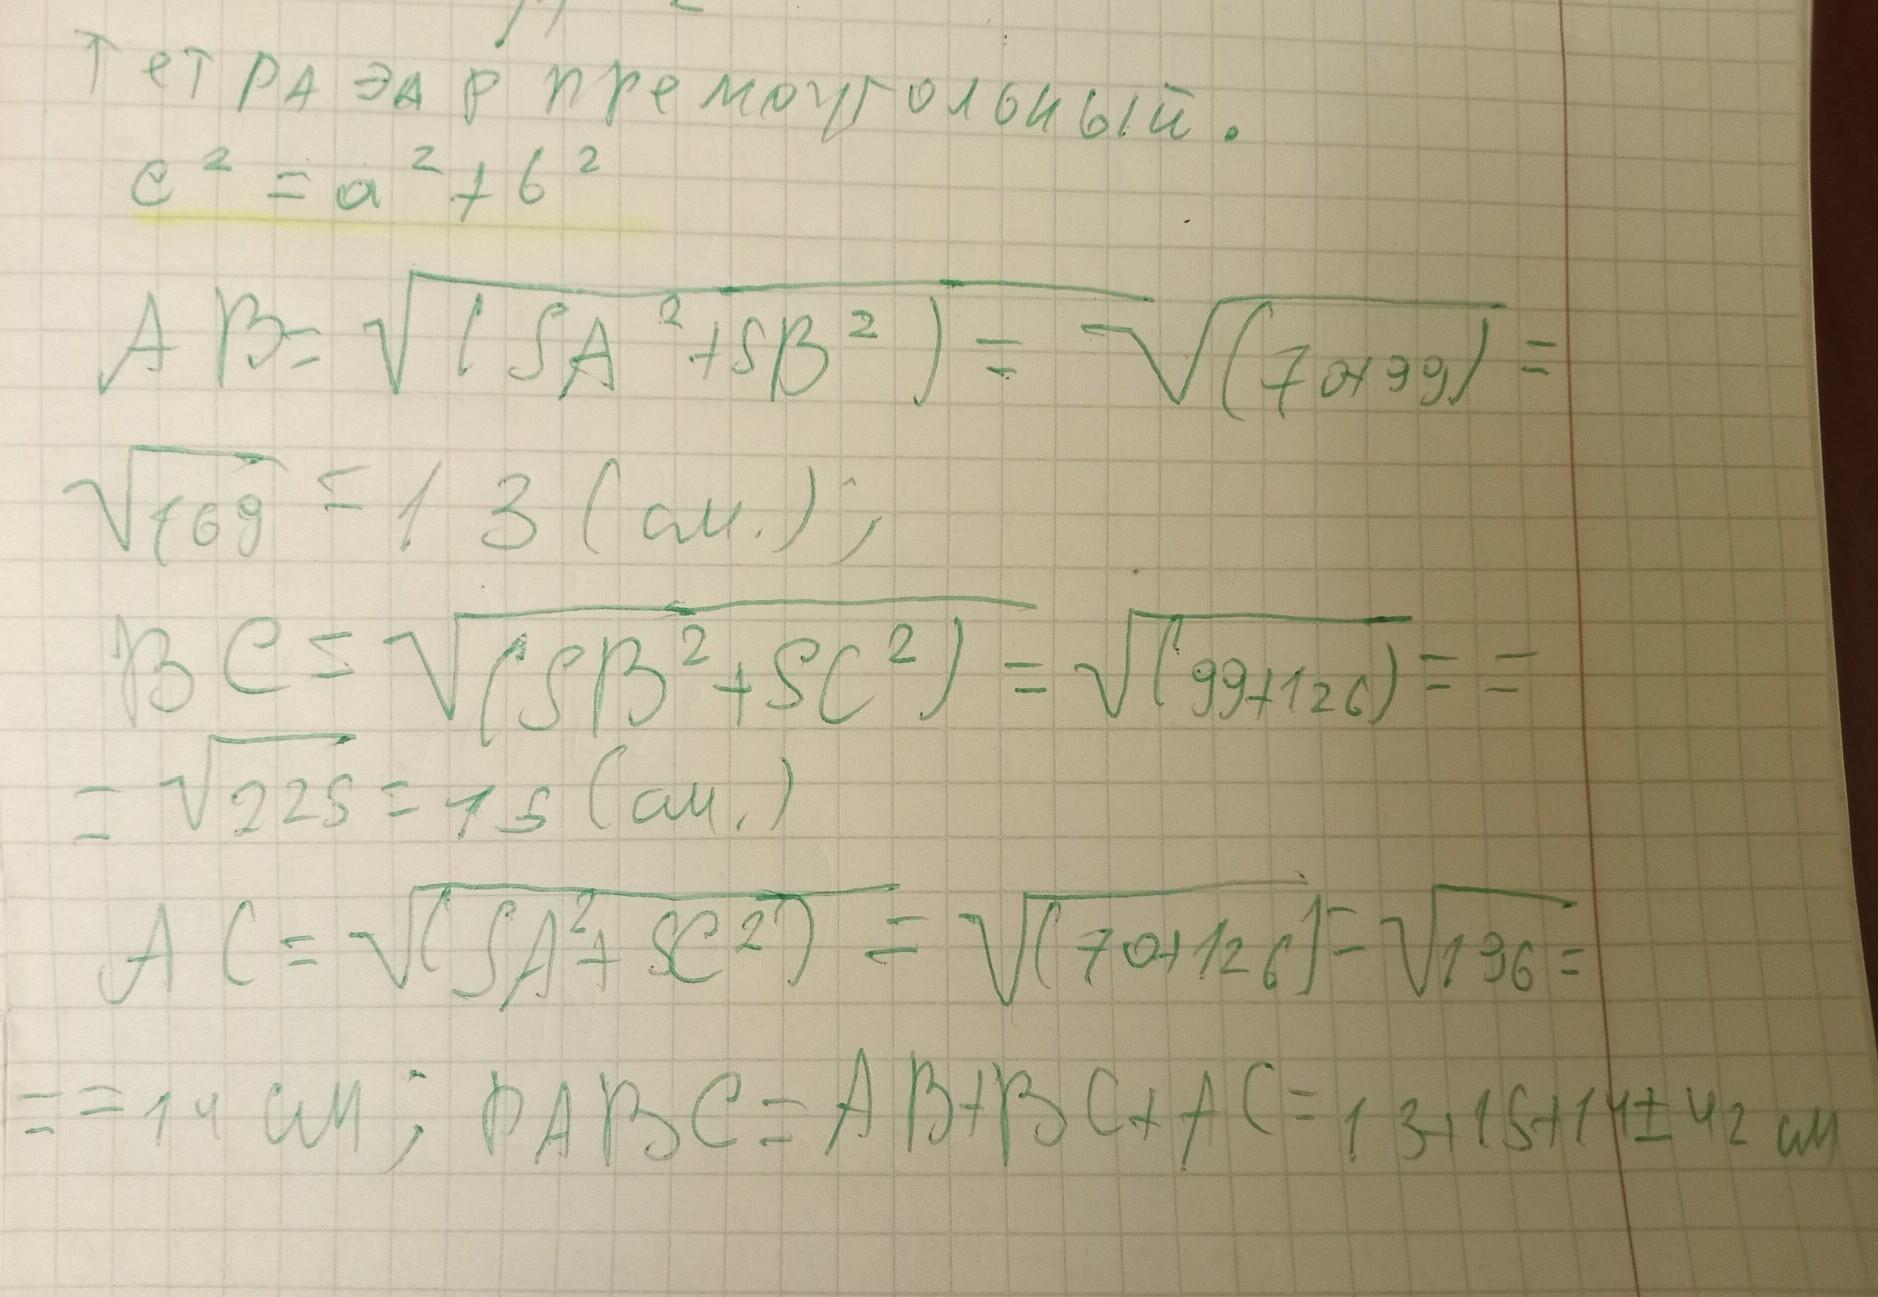 Тетраэдр премоугольный.
c² = a² + b²
AB = √(SA² + SB²) = √(70+99) =
√169 = 13 (см.);
BC = √(SB² + SC²) = √(99+126) = =
= √225 = 15 (см.)
AC = √(SA² + SC²) = √(70+126) = √196 =
= = 14 см; PABC = AB + BC + AC = 13+15+14 = 42 см